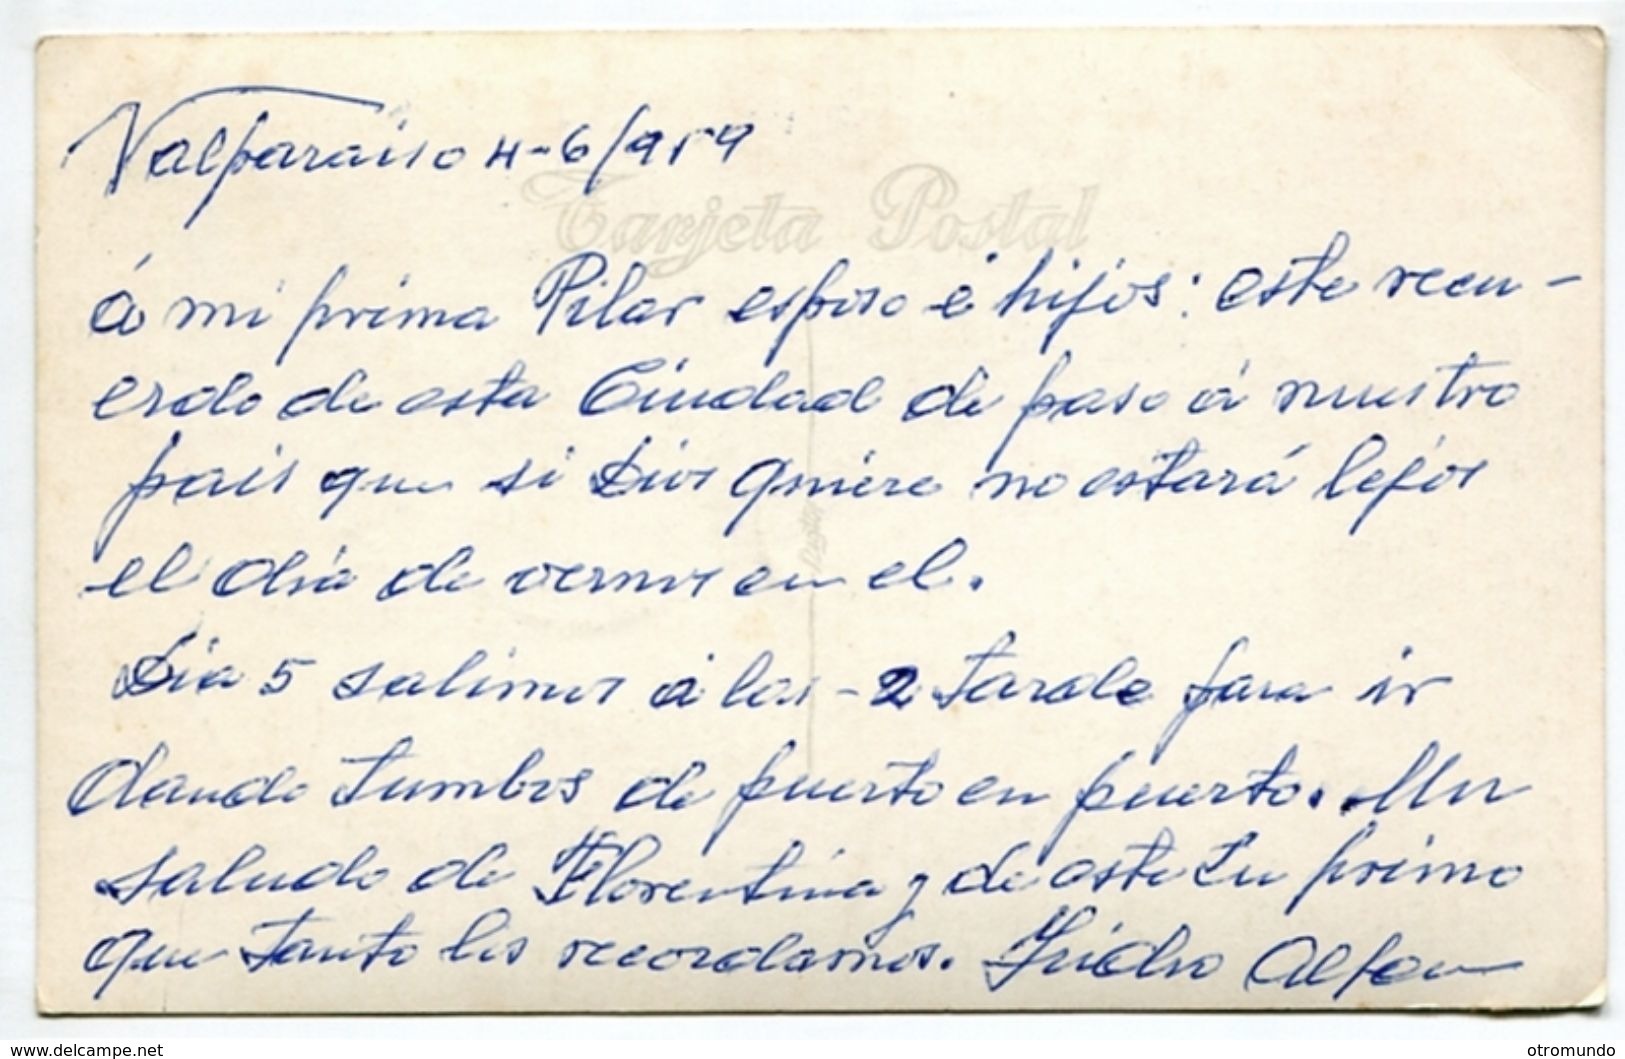 Valparaiso 4-6/959
Tarjeta Postal
á mi prima Pilar esposo é hijos: este recu-
erdo de esta Ciudad de paso á nuestro
pais que si Dios quiere no estará lejos
el día de vernos en el.
Dia 5 salimos á las -2 tarde para ir
dando tumbos de puerto en puerto. Un
saludo de Florentina y de este tu primo
que tanto les recordamos. Isidro
www.delcampe.net
otromundo